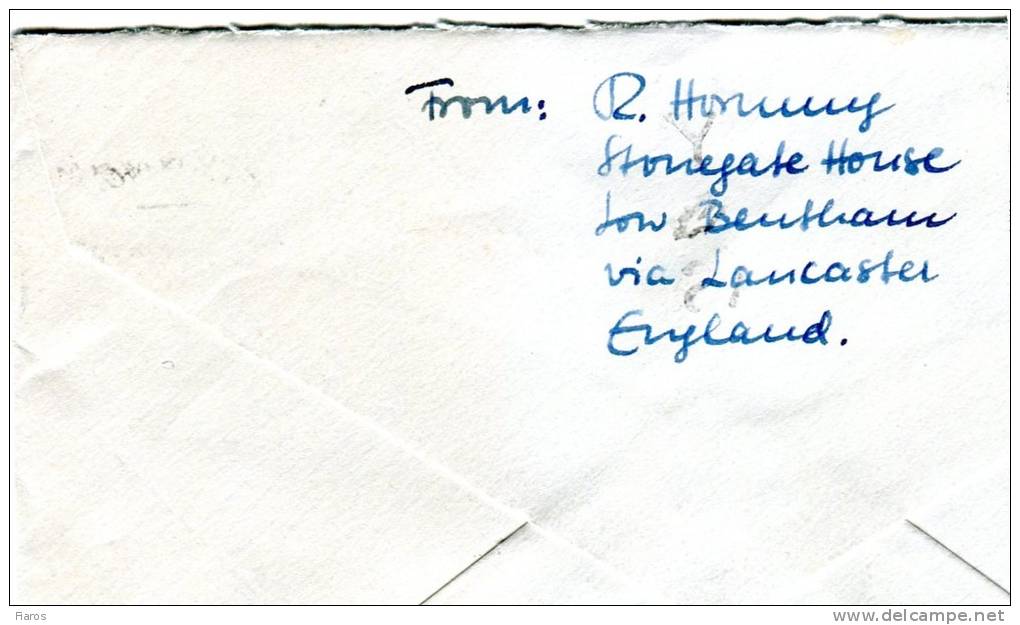 From: R. Hornung
Stonegate House
Low Bentham
via Lancaster
England.
Raros
www.delcampe.net